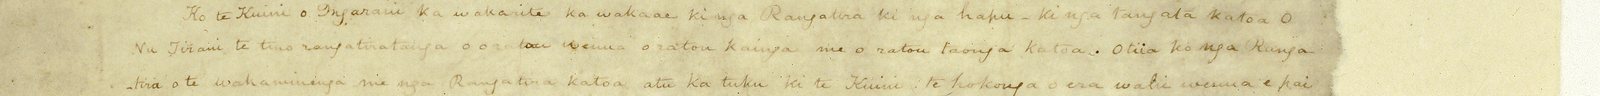 Ko te Kuini o Ingarani ka wakarite ka wakaae ki nga Rangatira ki nga hapu - ki nga tangata katoa o
Nu Tirani te tino rangatiratanga o o ratou wenua o ratou kainga me o ratou taonga katoa. Otiia ko nga Ranga
-tira o te wakaminenga me nga Rangatira katoa atu ka tuku ki te Kuini te hokonga o era wahi wenua e pai